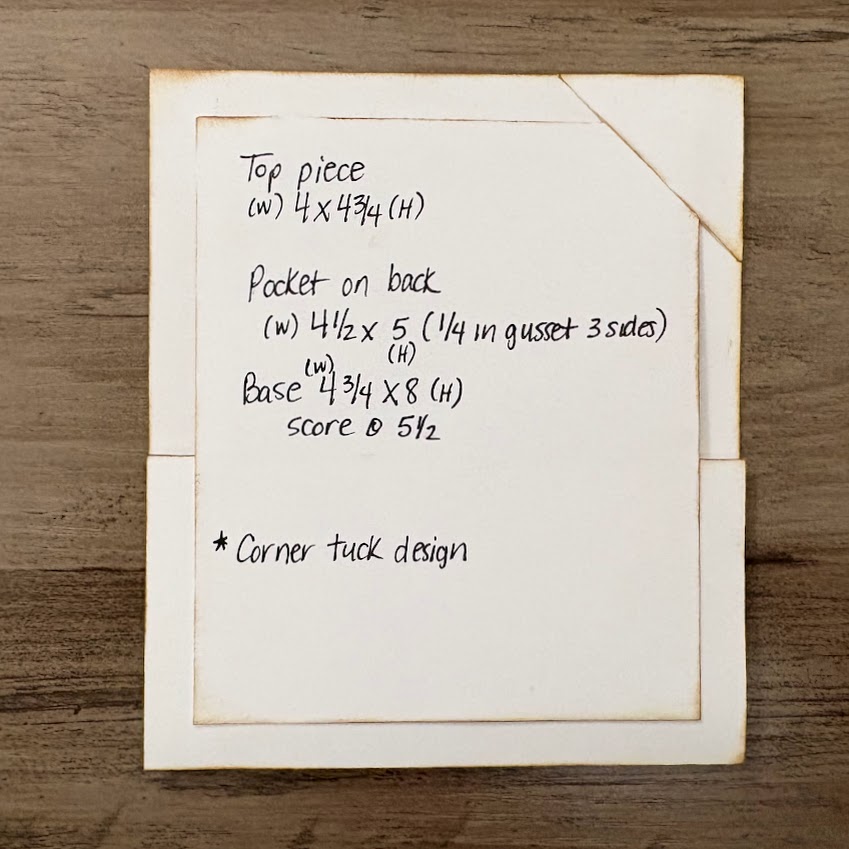 Top piece
(W) 4 x 4 3/4 (H)
Pocket on back
(W) 4 1/2 x 5 (H) (1/4 in gusset 3 sides)
Base (W) 4 3/4 x 8 (H)
score @ 5 1/2
* Corner tuck design